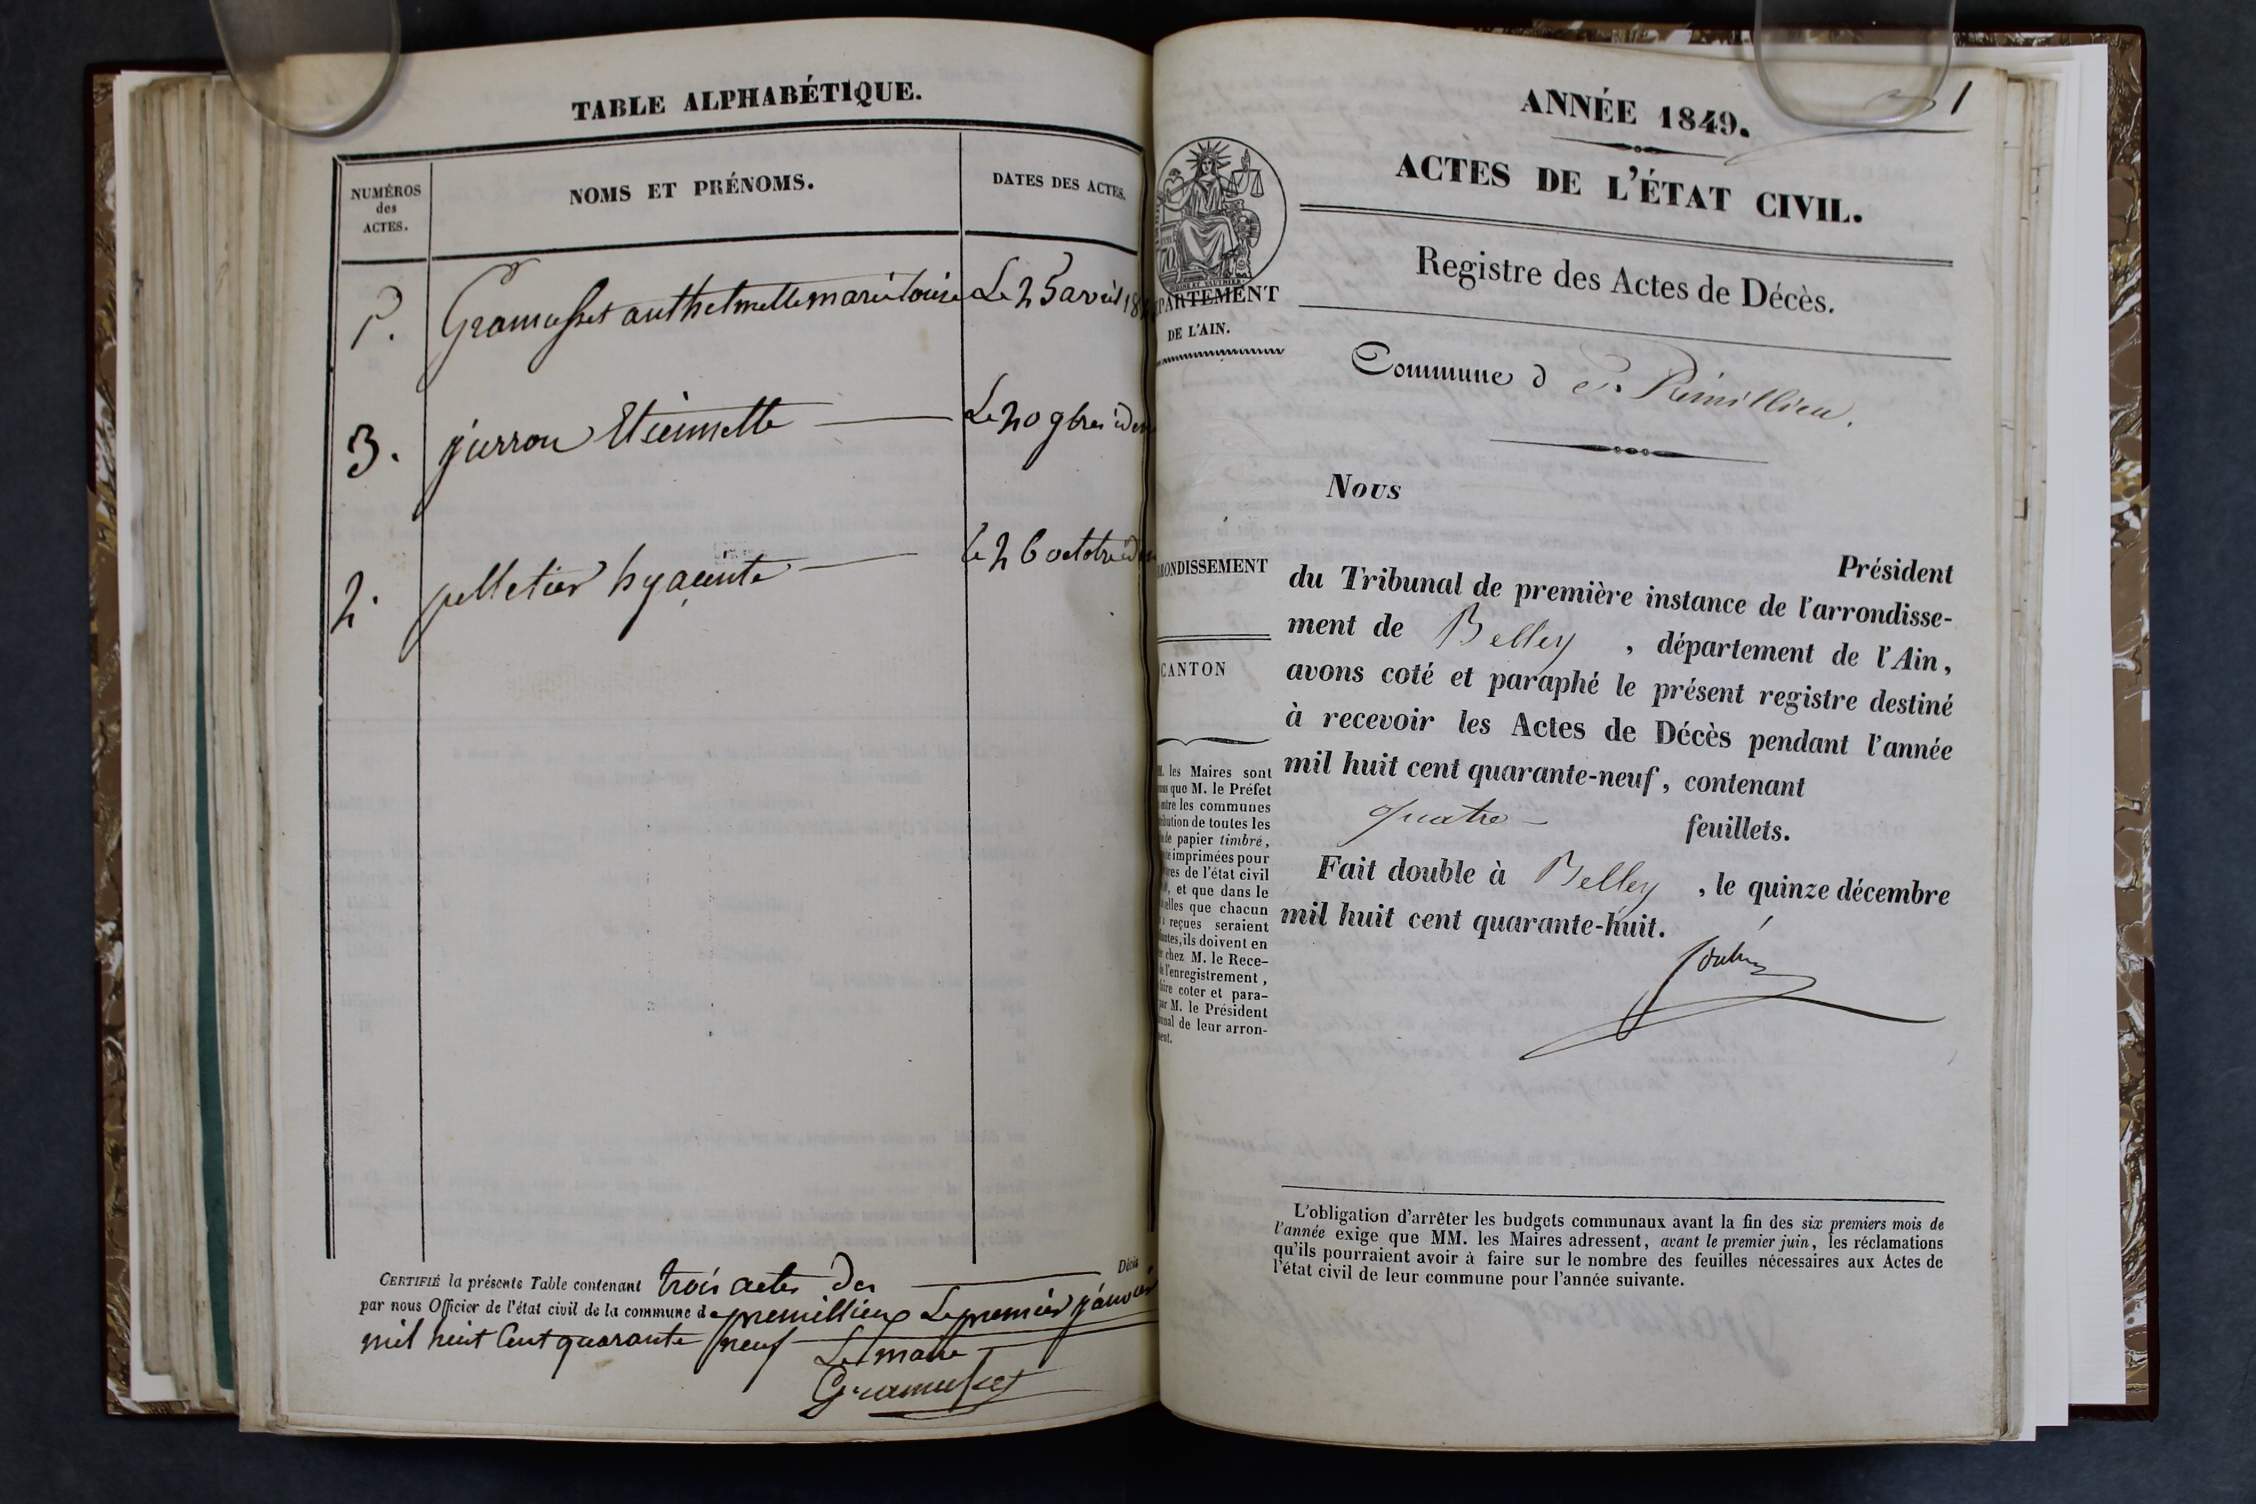 TABLE ALPHABÉTIQUE.
NUMÉROS
des
ACTES.
NOMS ET PRÉNOMS.
DATES DES ACTES.
1. Gramusset anthelmette marie louise Le 25 avril 18
3. jurron Etiennette — Le 20 9bre idem
2. pelletier hyaçinte — le 26 octobre
CERTIFIÉ la présente Table contenant trois actes des — Décès
par nous Officier de l'état civil de la commune de premillieux Le premier janvier
mil huit Cent quarante neuf
Le maire
Gramusset
1
ANNÉE 1849.
ACTES DE L'ÉTAT CIVIL.
Registre des Actes de Décès.
PARTEMENT
DE L'AIN.
Commune d e Prémillieu.
Nous
Président
du Tribunal de première instance de l'arrondisse-
ment de Belley, département de l'Ain,
avons coté et paraphé le présent registre destiné
à recevoir les Actes de Décès pendant l'année
mil huit cent quarante-neuf, contenant
quatre — feuillets.
Fait double à Belley, le quinze décembre
mil huit cent quarante-huit.
ONDISSEMENT
CANTON
les Maires sont
que M. le Préfet
entre les communes
bution de toutes les
de papier timbré,
imprimées pour
res de l'état civil
, et que dans le
elles que chacun
reçues seraient
antes, ils doivent en
chez M. le Rece-
de l'enregistrement,
faire coter et para-
par M. le Président
unal de leur arron-
ment.
L'obligation d'arrêter les budgets communaux avant la fin des six premiers mois de
l'année exige que MM. les Maires adressent, avant le premier juin, les réclamations
qu'ils pourraient avoir à faire sur le nombre des feuilles nécessaires aux Actes de
l'état civil de leur commune pour l'année suivante.